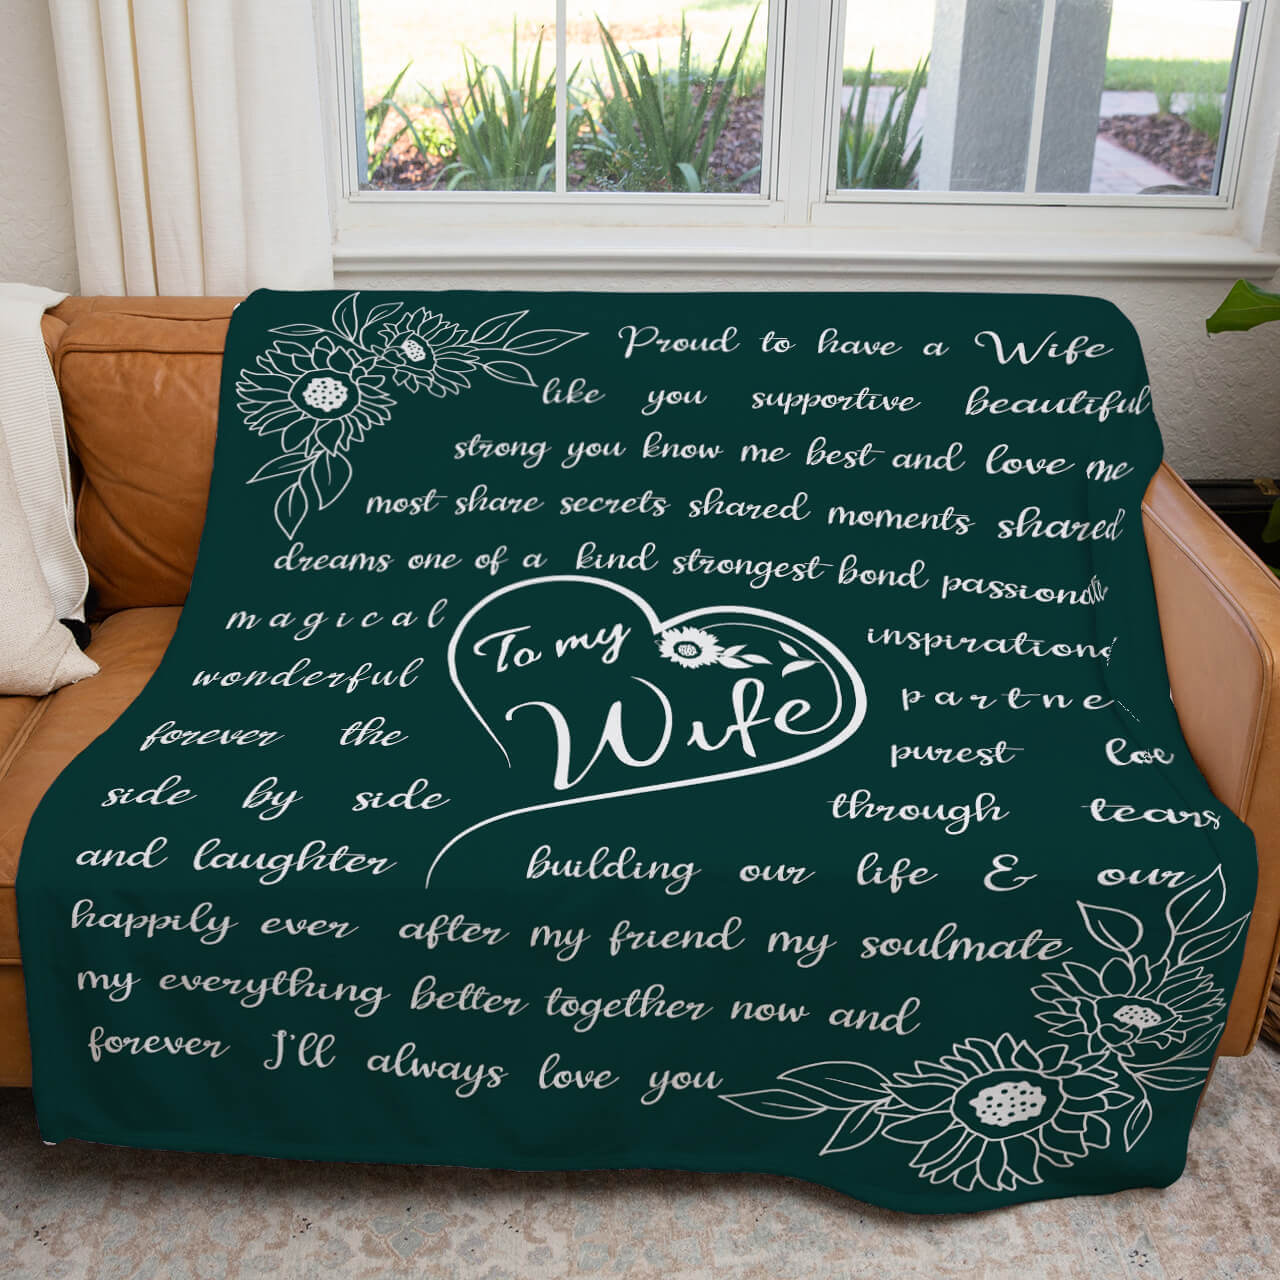 Proud to have a Wife
like you supportive beautiful
strong you know me best and love me
most share secrets shared moments shared
dreams one of a kind strongest bond passionate
magical
To my
inspiration
wonderful
Wife
partne
forever the
purest
side by side
through tears
and laughter building our life & our
happily ever after my friend my soulmate
my everything better together now and
forever I'll always love you